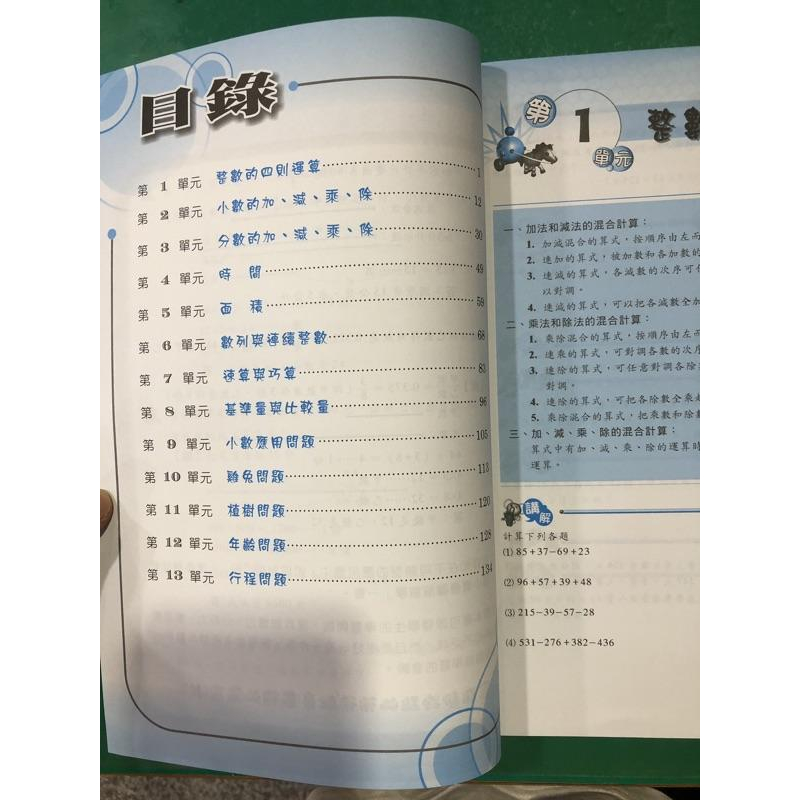 目錄
第 1 單元 整數的四則運算 1
第 2 單元 小數的加、減、乘、除 12
第 3 單元 分數的加、減、乘、除 30
第 4 單元 時 間 49
第 5 單元 面 積 59
第 6 單元 數列與連續整數 68
第 7 單元 速算與巧算 83
第 8 單元 基準量與比較量 96
第 9 單元 小數應用問題 105
第 10 單元 雞兔問題 113
第 11 單元 植樹問題 120
第 12 單元 年齡問題 128
第 13 單元 行程問題 134
第 1 單元 整數
一、加法和減法的混合計算：
1. 加減混合的算式，按順序由左而
2. 連加的算式，被加數和各加數的
3. 連減的算式，各減數的次序可任
以對調。
4. 連減的算式，可以把各減數全加
二、乘法和除法的混合計算：
1. 乘除混合的算式，按順序由左而
2. 連乘的算式，可對調各數的次序
3. 連除的算式，可任意對調各除
對調。
4. 連除的算式，可把各除數全乘起
5. 乘除混合的算式，把乘數和除數
三、加、減、乘、除的混合計算：
算式中有加、減、乘、除的運算時
運算。
講解
計算下列各題
(1) 85+37−69+23
(2) 96+57+39+48
(3) 215−39−57−28
(4) 531−276+382−436